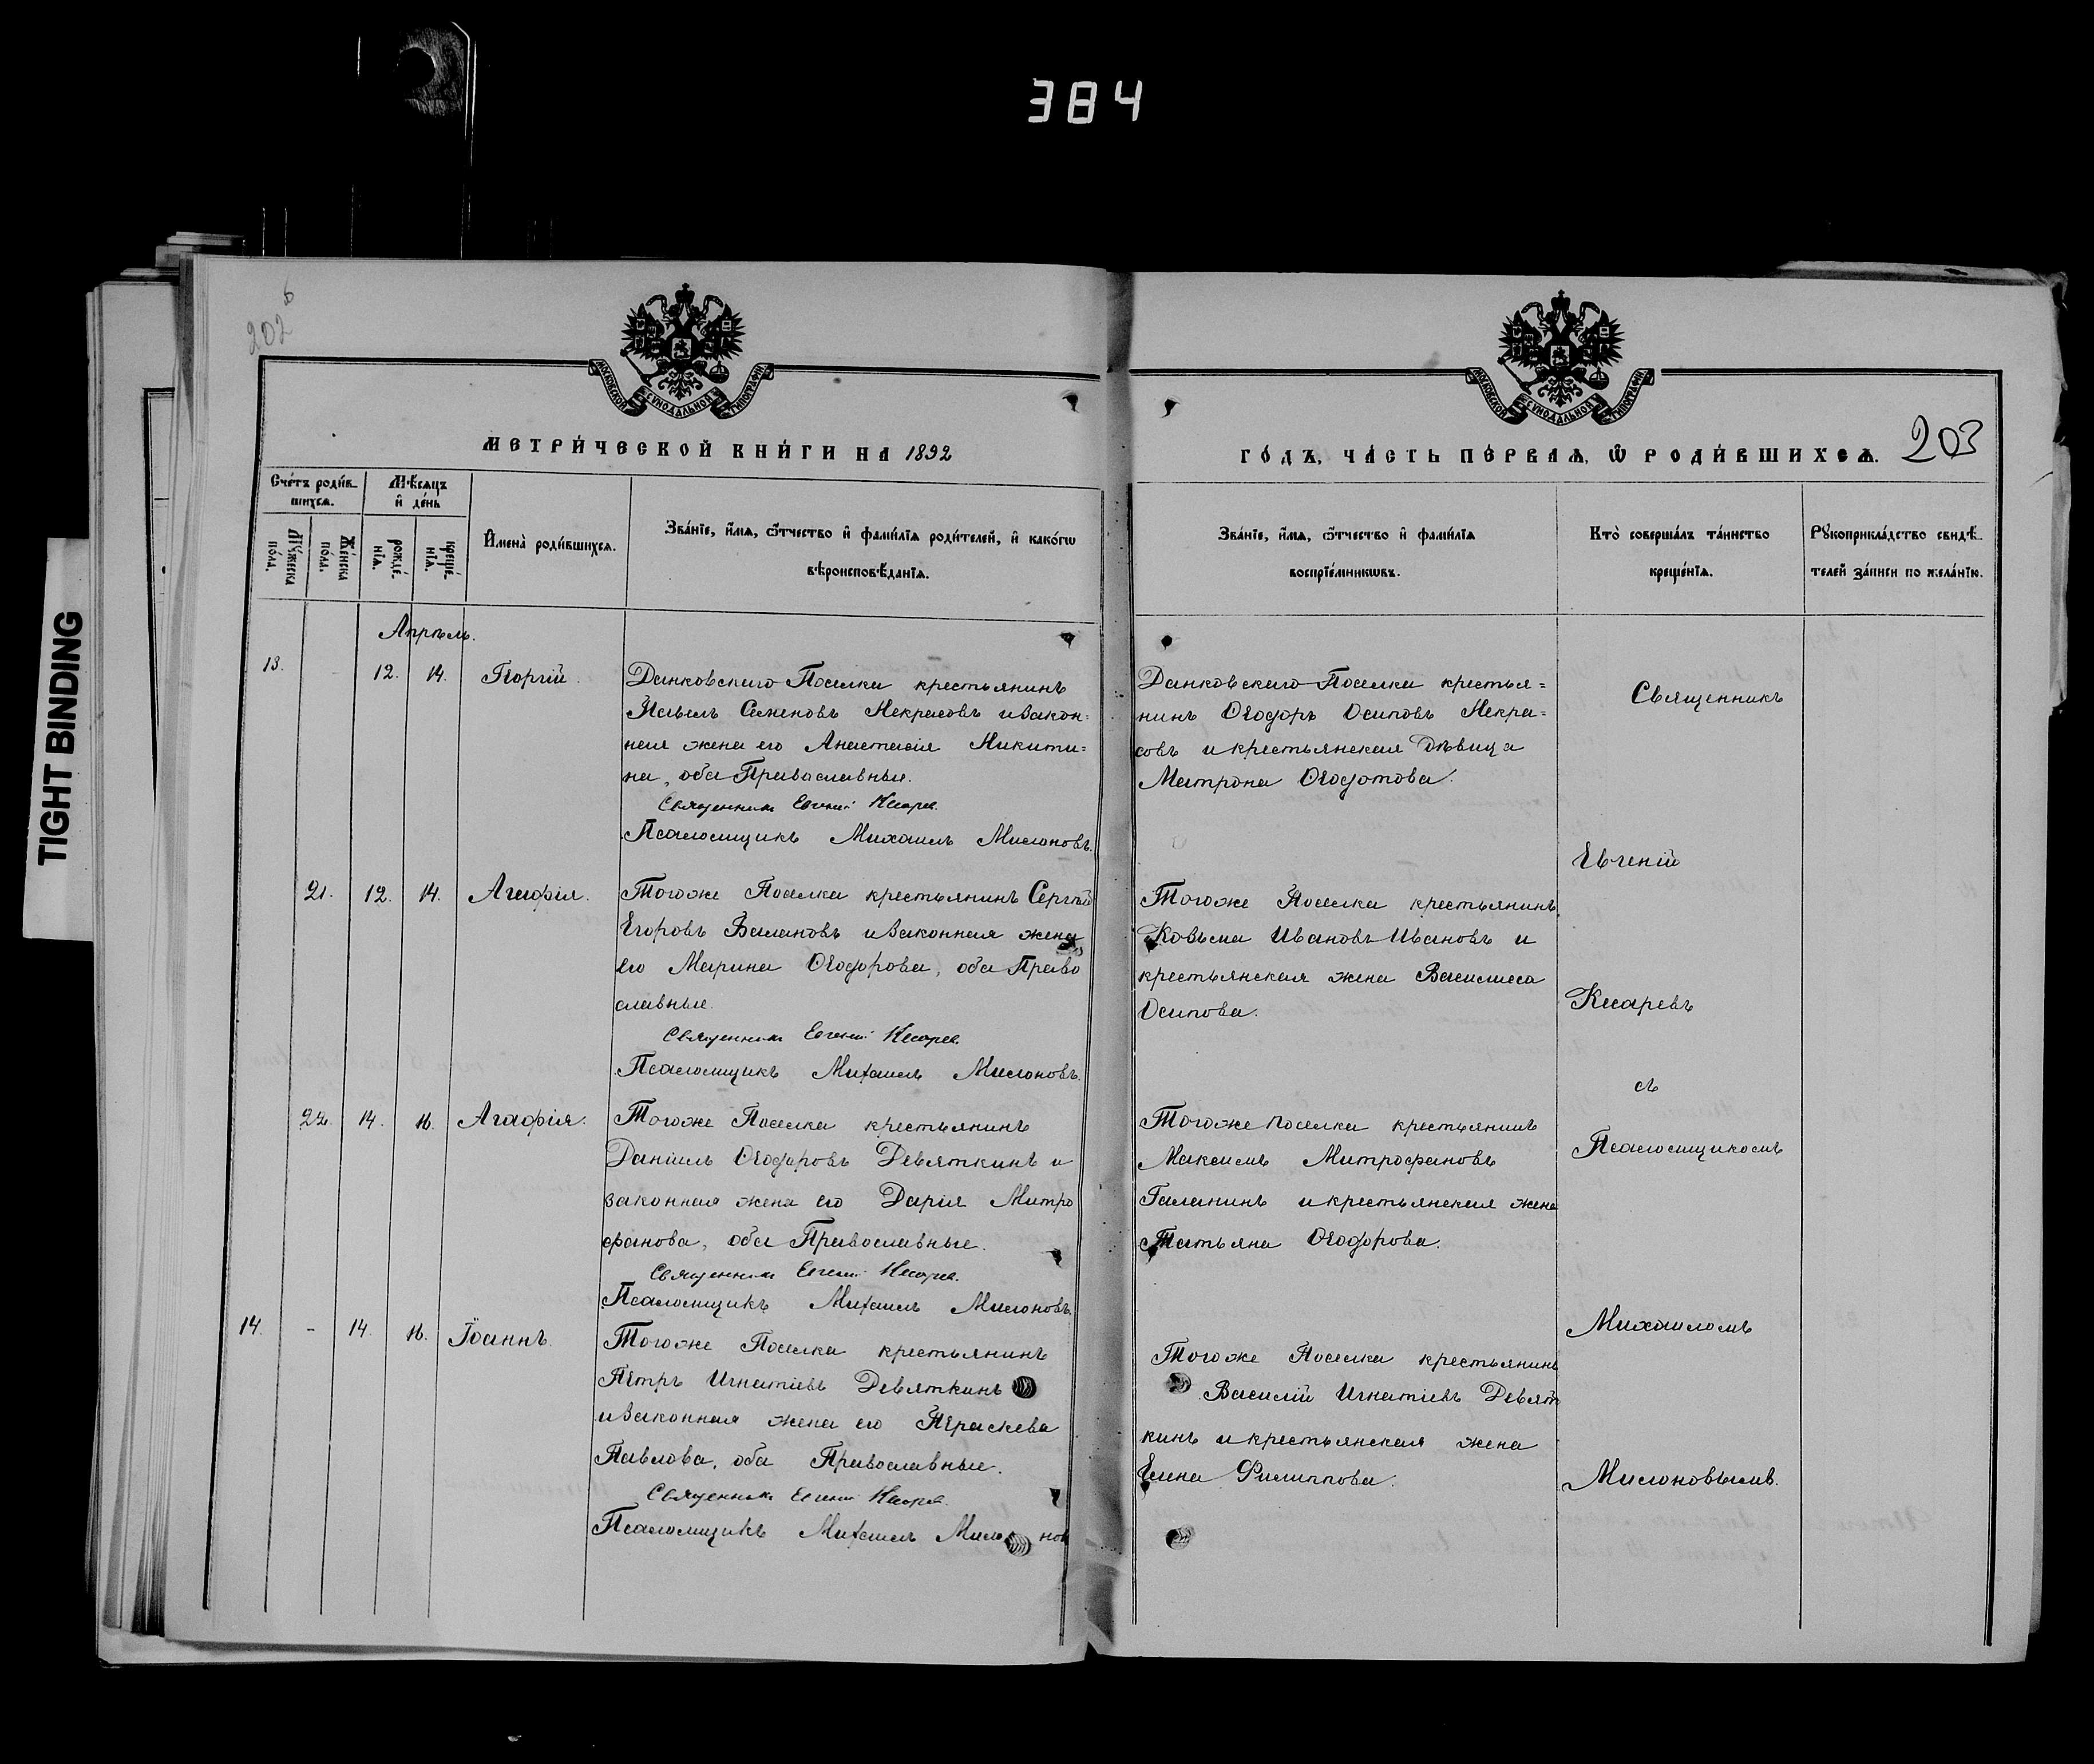 384
TIGHT BINDING
202
МОСКОВСКОЙ СѴНОДАЛЬНОЙ ТИПОГРАФІИ
МЕТРИ́ЧЕСКОЙ КНИ́ГИ НА 1892
Сче́тъ роди́в-
шихсѧ.
Мѣ́сѧцъ
и҆ де́нь
Мꙋ́жеска
по́ла.
Же́нска
по́ла.
рожде́-
нїѧ.
креще́-
нїѧ.
И҆мена̀ роди́вшихсѧ.
Зва́нїе, и҆́мѧ, ѻ҆́тчество и҆ фами́лїѧ роди́телей, и҆ како́гѡ
вѣроисповѣ́данїѧ.
Апрѣль.
13. - 12. 14. Георгій.
Данковскаго Поселка крестьянинъ
Павелъ Семеновъ Некрасовъ и закон=
ная жена его Анастасія Никити=
на, оба Православные.
Священникъ Евгеній Кесарев.
Псаломщикъ Михаилъ Милоновъ.
21. 12. 14. Агафія.
Тогоже Поселка крестьянинъ Сергѣй
Егоровъ Балановъ и законная жена
его Марина Ѳеодорова, оба Право
славные.
Священникъ Евгеній Кесарев.
Псаломщикъ Михаилъ Милоновъ.
22. 14. 16. Агафія.
Тогоже Поселка крестьянинъ
Даніилъ Ѳеодоровъ Девяткинъ и
законная жена его Дарія Митро
фанова, оба Православные.
Священникъ Евгеній Кесарев.
Псаломщикъ Михаилъ Милоновъ.
14. - 14. 16. Іоаннъ.
Тогоже Поселка крестьянинъ
Петръ Игнатіевъ Девяткинъ
и законная жена его Параскева
Павлова, оба Православные.
Священникъ Евгеній Кесарев.
Псаломщикъ Михаилъ Милонов
МОСКОВСКОЙ СѴНОДАЛЬНОЙ ТИПОГРАФІИ
ГО́ДЪ, ЧА́СТЬ ПЕ́РВАѦ, Ѽ РОДИ́ВШИХСѦ.
203
Зва́нїе, и҆́мѧ, ѻ҆́тчество и҆ фами́лїѧ
воспрїе́мникѡвъ.
Кто̀ соверша́лъ та́инство
креще́нїѧ.
Рꙋкоприкла́дство свидѣ́-
телей за́писи по жела́нїю.
Данковскаго Поселка крестья=
нинъ Ѳеодоръ Осиповъ Некра=
совъ и крестьянская дѣвица
Матрона Ѳеодотова.
Тогоже Поселка крестьянинъ
Козьма Ивановъ Ивановъ и
крестьянская жена Василиса
Осипова.
Тогоже поселка крестьянинъ
Максимъ Митрофановъ
Галанинъ и крестьянская жена
Татьяна Ѳеодорова.
Тогоже Поселка крестьянинъ
Василій Игнатіевъ Девят
кинъ и крестьянская жена
Елена Филиппова.
Священникъ
Евгеній
Кесаревъ
съ
Псаломщикомъ
Михаиломъ
Милоновымъ.